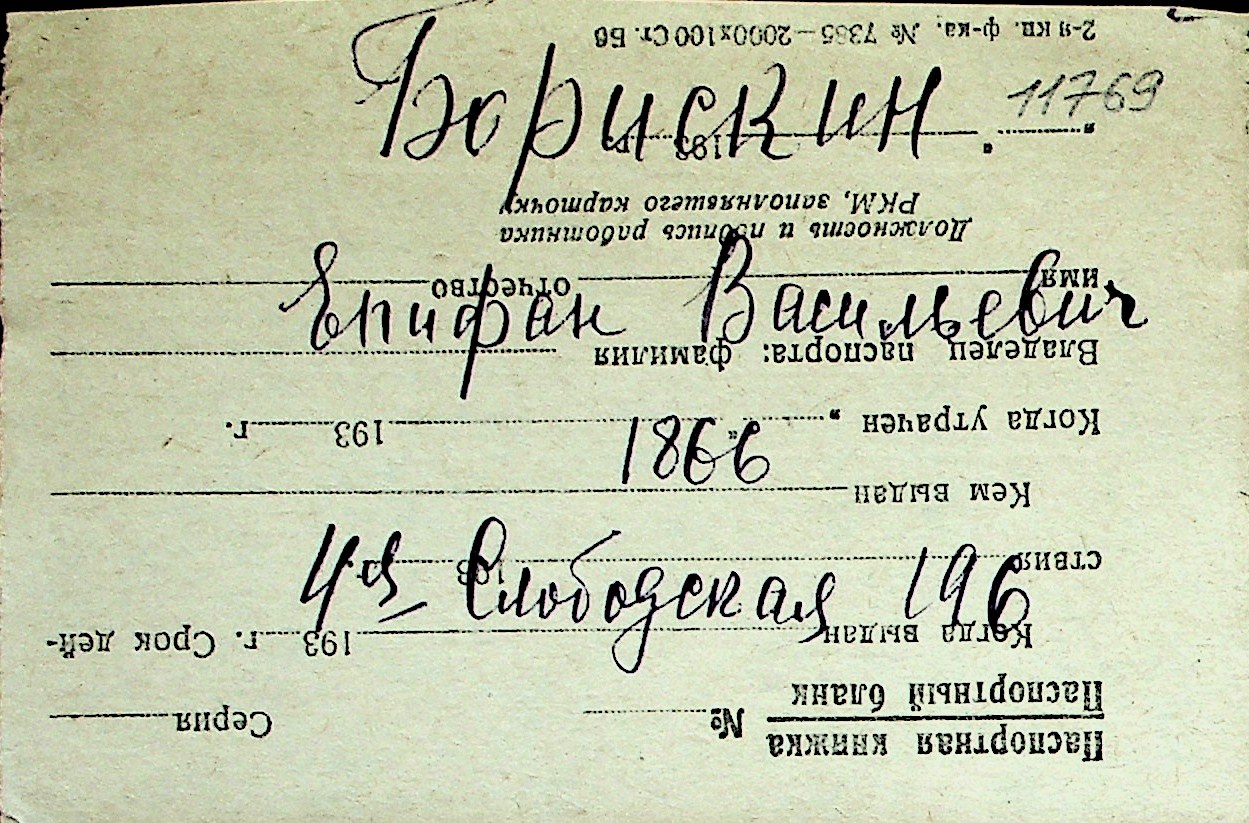 11769
Борискин
Епифан Васильевич
1866
4ая Слободская 196
Паспортная книжка
Паспортный бланк № Серия
Когда выдан 193 г. Срок дей-
ствия 193 г.
Кем выдан
Когда утрачен „ “ 193 г.
Владелец паспорта: фамилия
имя отчество
Должность и подпись работника
РКМ, заполнявшего карточку
„ “ 193 г.
2-я кп. ф-ка. № 7385—2000х100 Ст. Бб